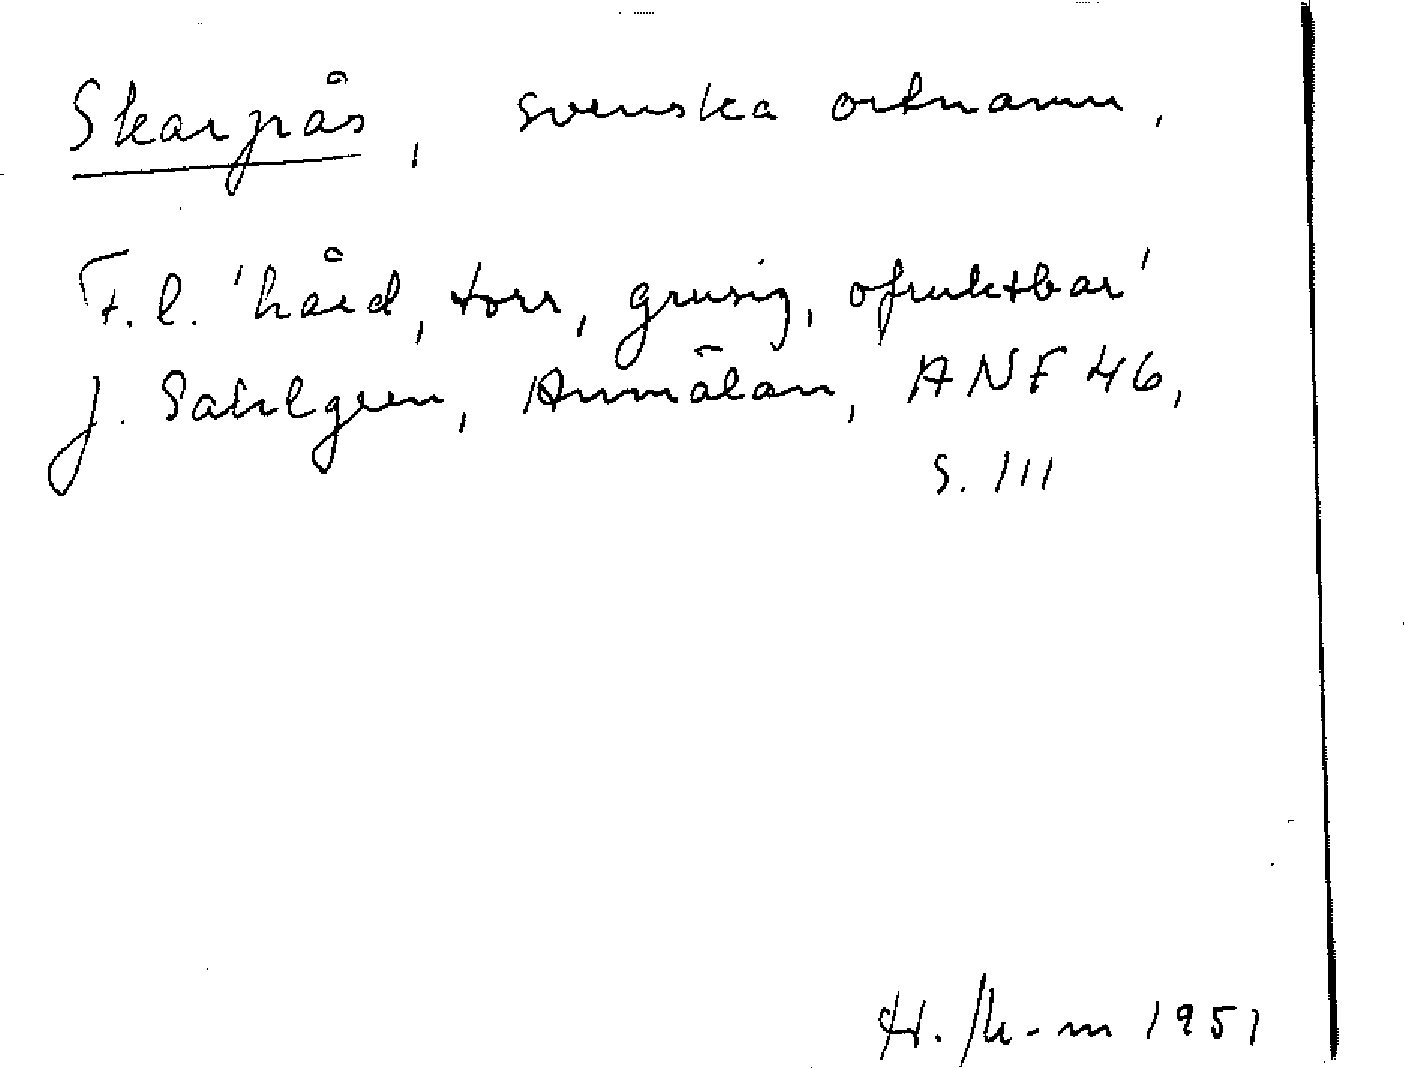 Skarpås, svenska ortnamn,
F.l. 'hård, torr, grusig, ofruktbar'
J. Sahlgren, Anmälan, ANF 46,
s. 111
H. 1951